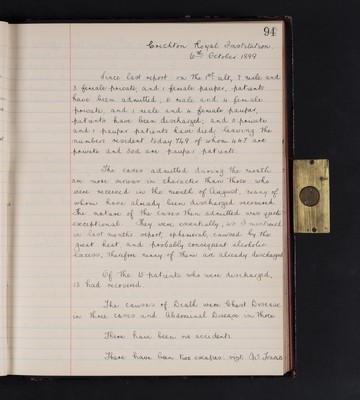 94
Crichton Royal Institution
6th October 1899
Since last report on the 1st ult, 7 male and
3 female private, and 1 female pauper, patients
have been admitted; 6 male and 4 female
private, and 1 male and 4 female pauper,
patients have been discharged; and 3 private
and 1 pauper patients have died, leaving the
numbers resident today 749 of whom 447 are
private and 302 are pauper patients.
The cases admitted during the month
are more serious in character than those who
were received in the month of August, many of
whom have already been discharged recovered.
The nature of the cases then admitted was quite
exceptional. They were essentially, as I mentioned
in last months report, ephemeral, caused by the
great heat, and probably consequent alcoholic
excess, therefore many of them are already discharged
Of the 15 patients who were discharged,
13 had recovered.
The causes of Death were Chest Disease
in three cases and Abdominal Disease in three
There have been no accidents.
There have been two escapes: vizt.